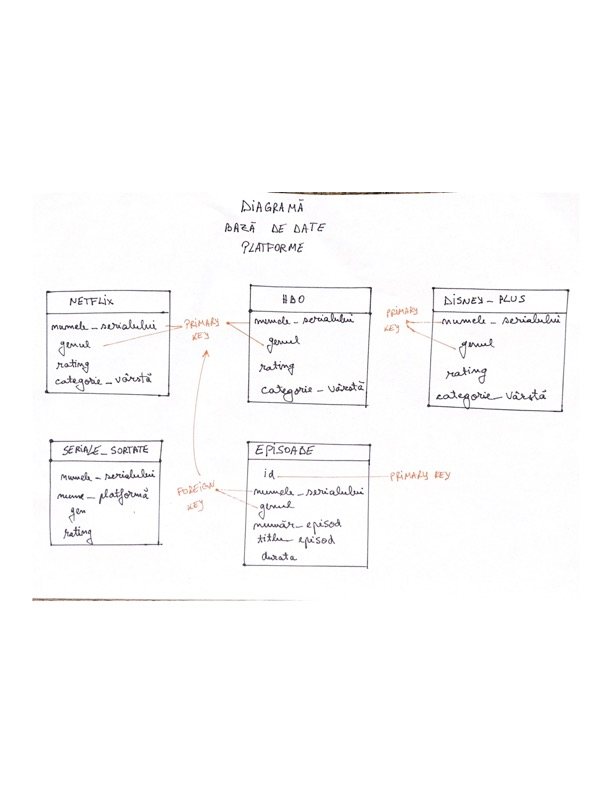 DIAGRAMĂ
BAZĂ DE DATE
PLATFORME
NETFLIX
numele_serialului
genul
rating
categorie_vârstă
PRIMARY
KEY
HBO
numele_serialului
genul
rating
categorie_vârstă
PRIMARY
KEY
DISNEY_PLUS
numele_serialului
genul
rating
categorie_vârstă
SERIALE_SORTATE
numele_serialului
nume_platformă
gen
rating
FOREIGN
KEY
EPISOADE
id
numele_serialului
genul
număr_episod
titlu_episod
durata
PRIMARY KEY